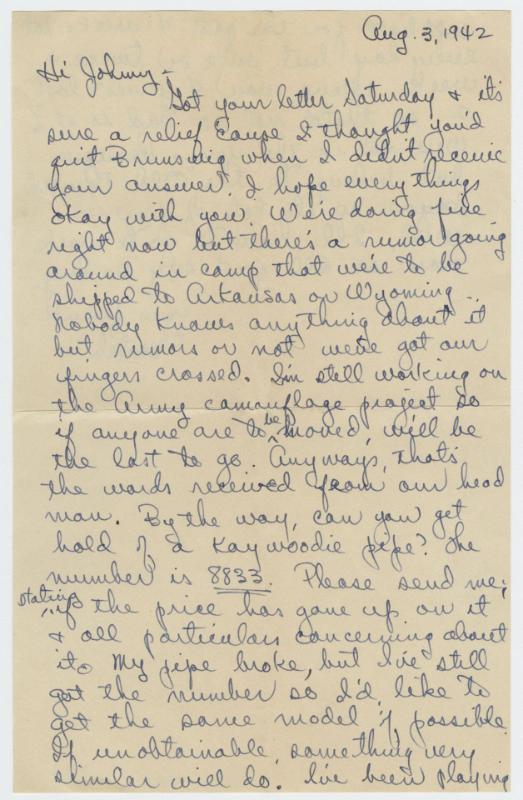 Aug. 3, 1942
Hi Johnny -
Got your letter Saturday & it's
sure a relief cause I thought you'd
quit Brunswig when I didn't receive
your answer. I hope everythings
okay with you. We're doing fine
right now but there's a rumor going
around in camp that we're to be
shipped to Arkansas or Wyoming..
Nobody knows anything about it
but rumors or not we've got our
fingers crossed. I'm still working on
the Army camouflage project so
if anyone are to be moved, we'll be
the last to go. Anyways, that's
the words received from our head
man. By the way, can you get
hold of a Kaywoodie pipe? The
number is 8833. Please send me;
stating if the price has gone up on it
& all particulars concerning about
it. My pipe broke, but I've still
got the number so I'd like to
get the same model if possible.
If unobtainable, something very
similar will do. I've been playing